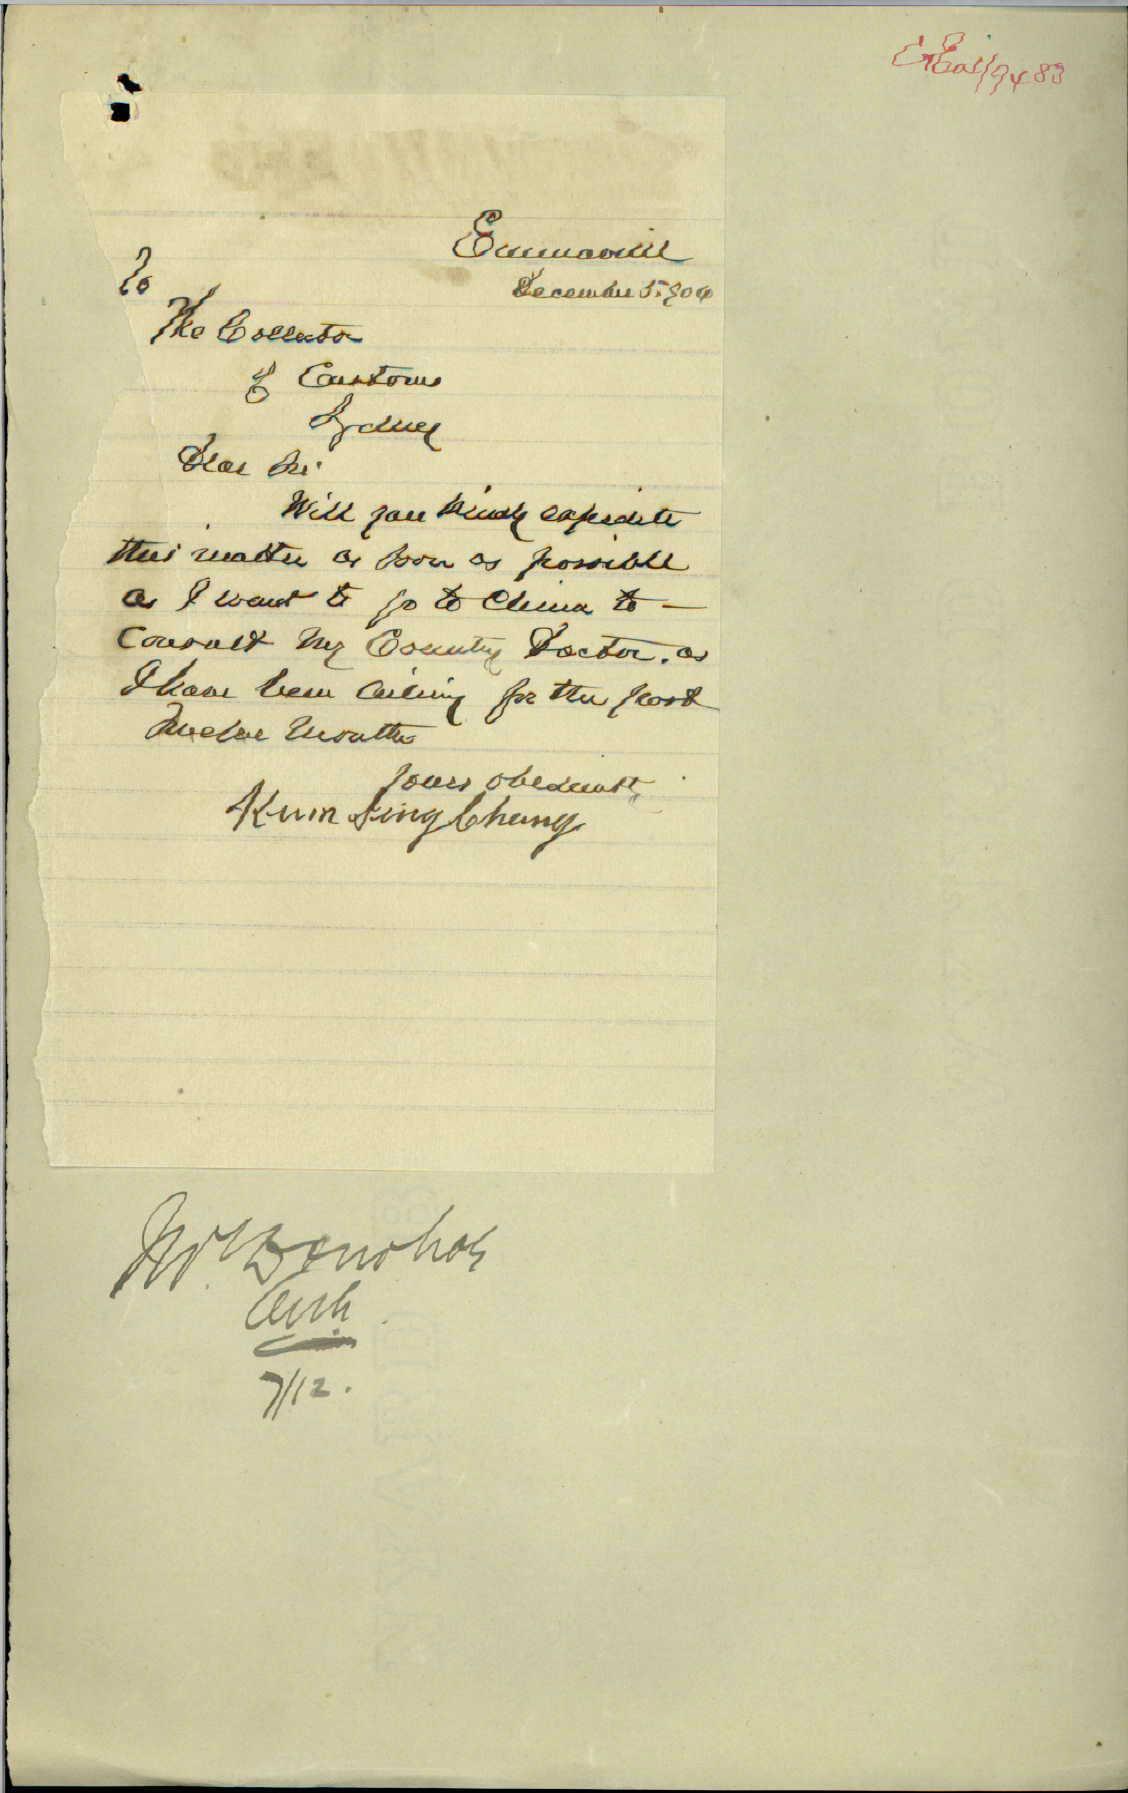 Emmaville
December 5. 1904
To
The Collector
of Customs
Sydney
Dear Sir
Will you kindly expedite
this matter as soon as possible
as I want to go to China to —
Consult my Country Doctor. as
I have been ailing for the past
Twelve Months
Yours obedient
Kum Sing Chung
Mr Donohoe
7/12.